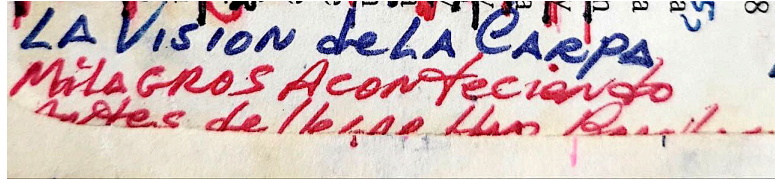 LA VISION de LA CARPA
MILAGROS AConteciendo
Antes de llegar